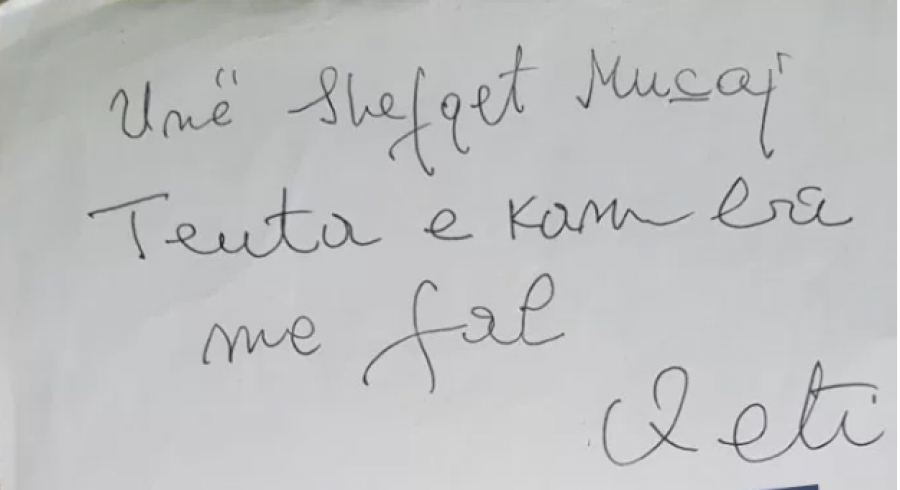 Unë Shefqet Muçaj
Teuta e kam vra
me fal
Qeti